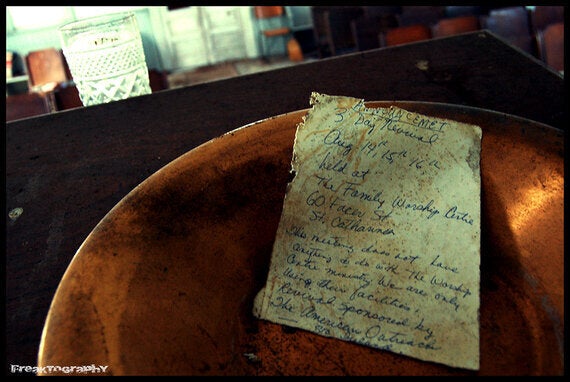 ANNOUNCEMENT
3 Day Revival
Aug 14th 15th 16th
held at
The Family Worship Centre
60 Facer St.
St. Catharines
This meeting does not have
anything to do with The Worship
Centre ministry. We are only
Using their facilities,
Revival sponsored by
The American Outreach
FreakTography